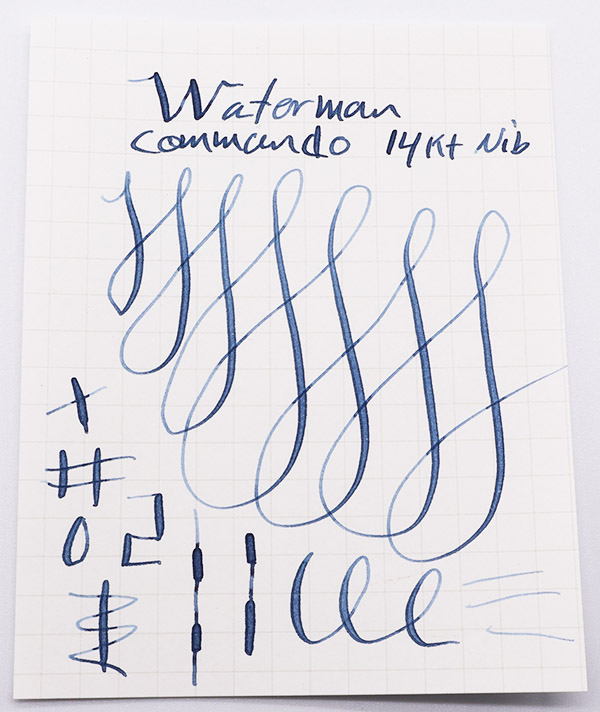 Waterman
Commando 14Kt Nib